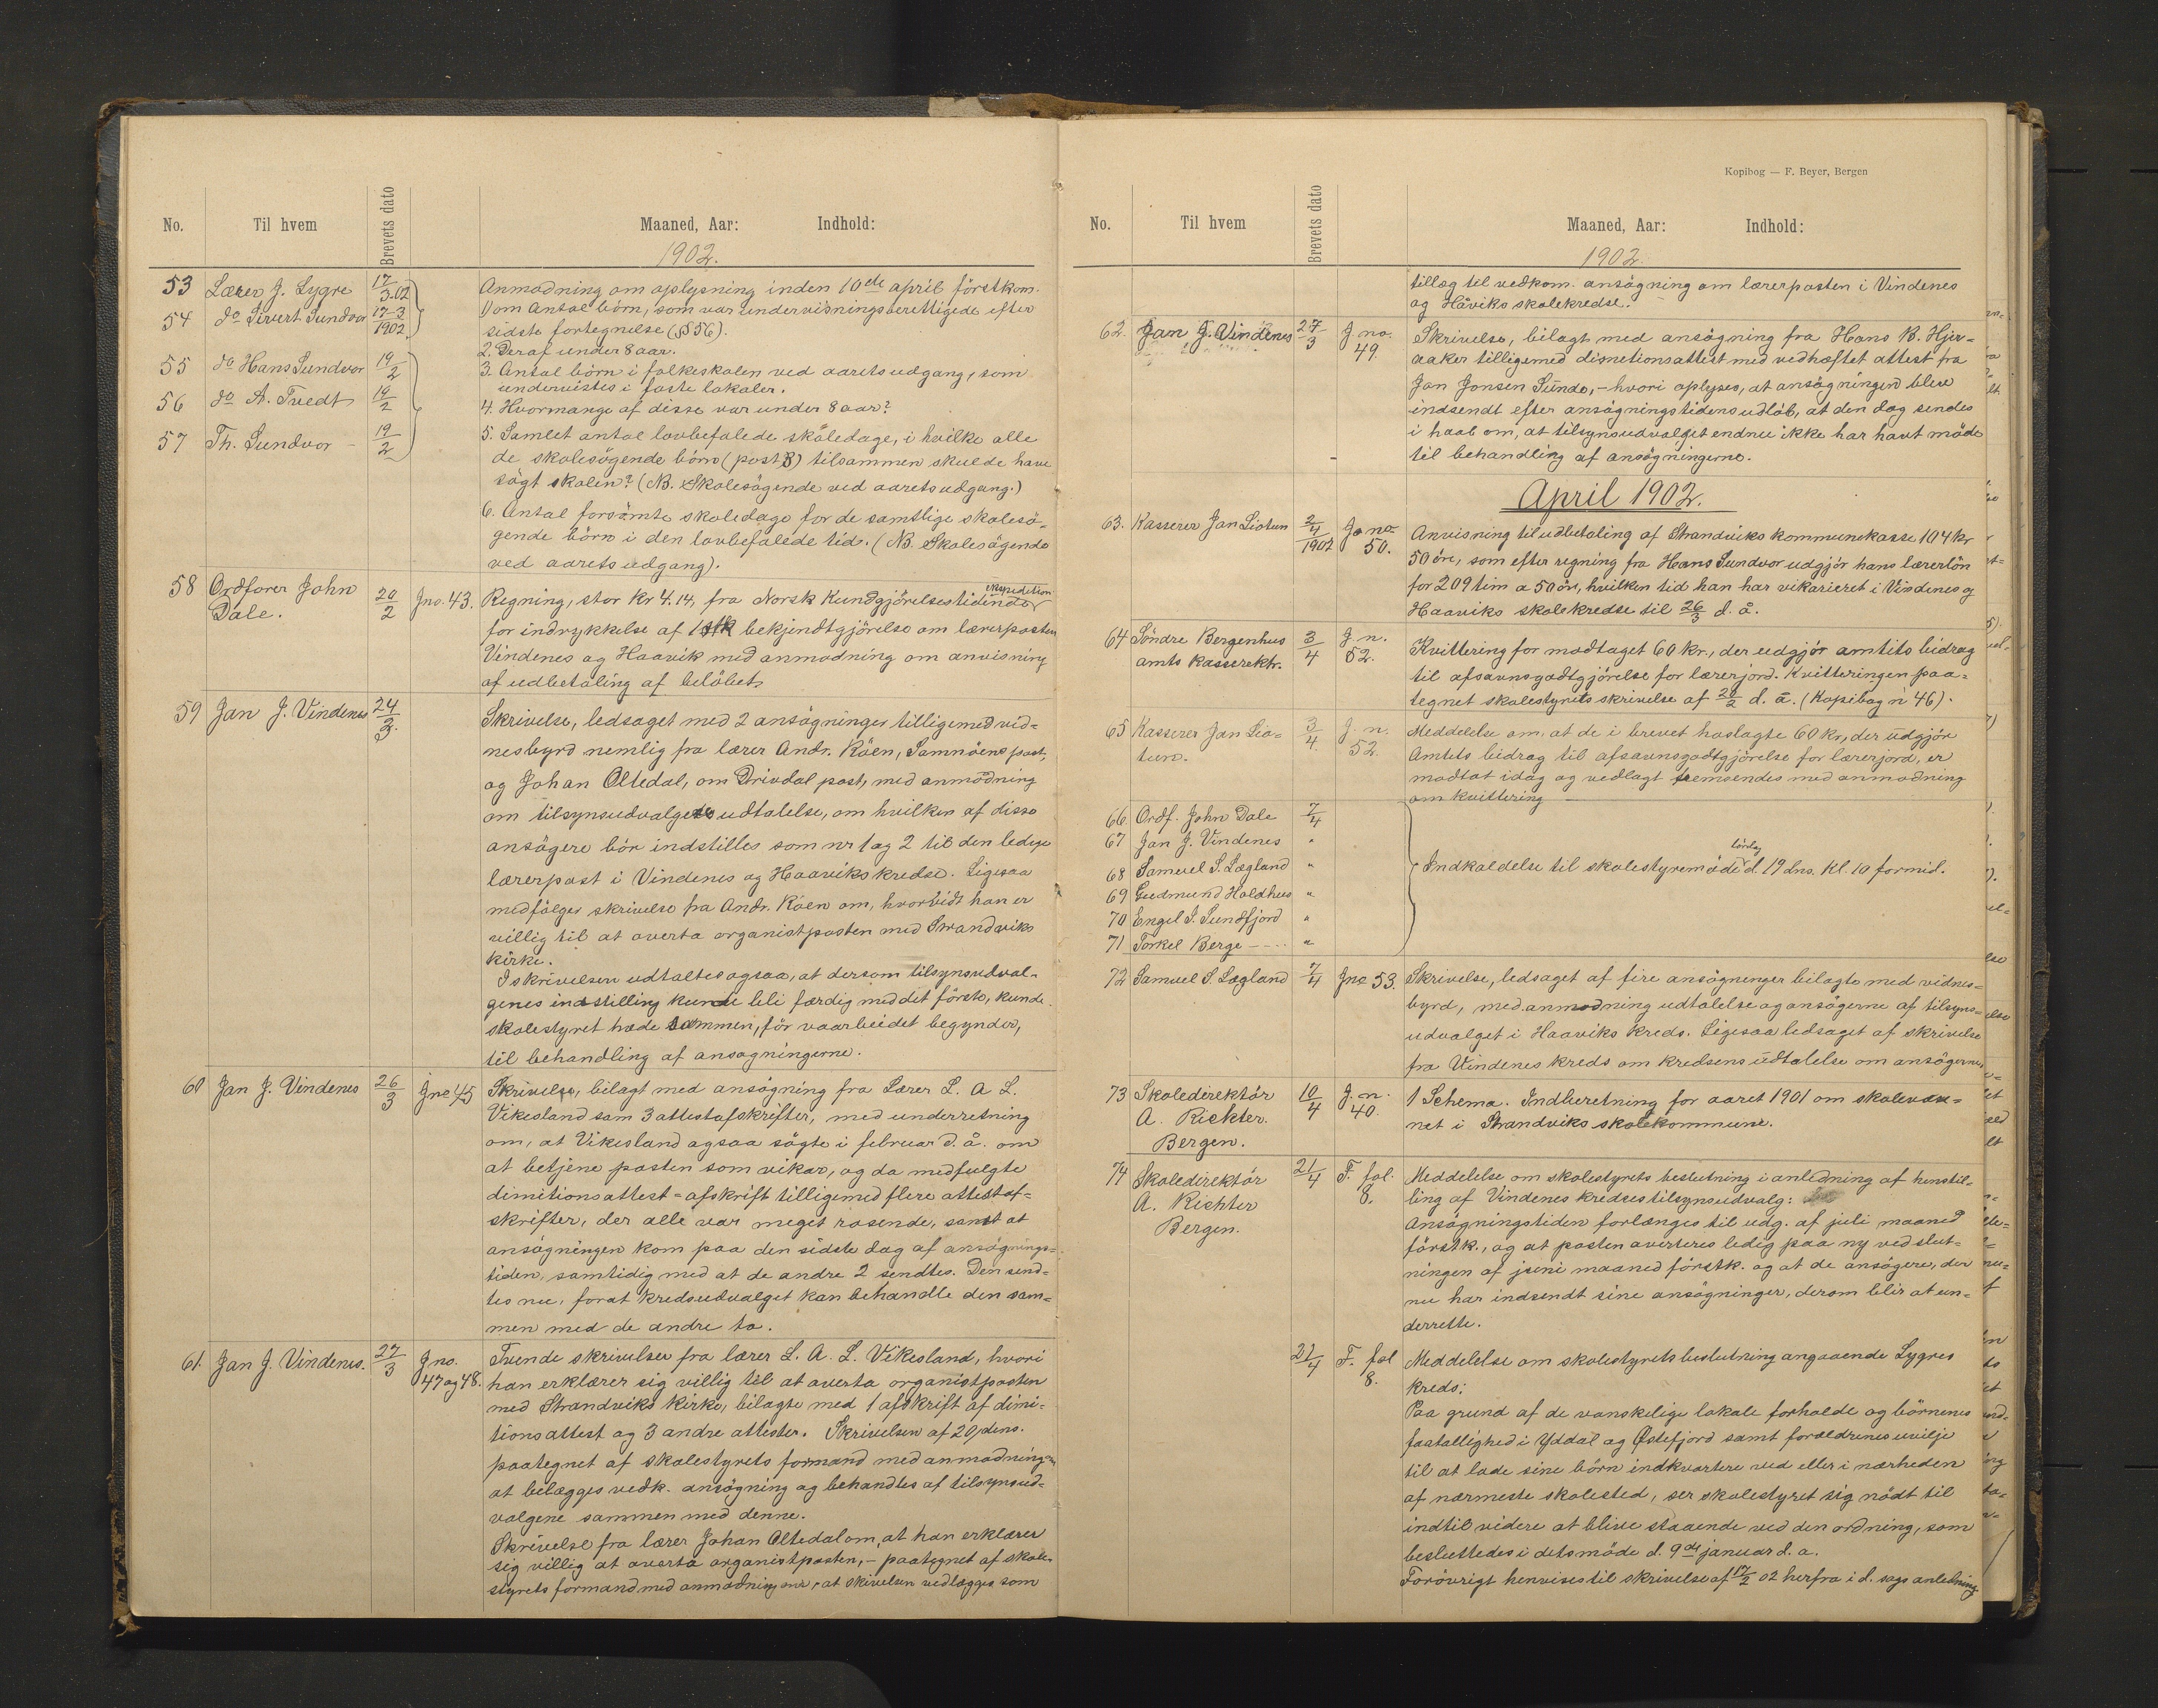 No. Til hvem Brevets dato Maaned, Aar: Indhold:
1902.
53 Lærer J. Lygre 17/3.02 Anmodning om oplysning inden 10de april förstkom.
54 do Sivert Sundvor 17-3 1902 1) om Antal börn, som var undervisningsberettigede efter
sidste fortegnelse (§ 56).
2. Deraf under 8 aar.
55 do Hans Sundvor 19/2 3. Antal börn i folkeskolen ved aarets udgang, som
undervistes i faste lokaler.
56 do A. Tvedt 19/2 4. Hvormange af disse var under 8 aar?
57 Th. Sundvor - 19/2 5. Samlet antal lovbefalede skoledage, i hvilke alle
de skolesögende börn (post 3) tilsammen skulde have
sögt skolen? (NB. Skolesögende ved aarets udgang.)
6. Antal forsömte skoledage for de samtlige skolesö-
gende börn i den lovbefalede tid. (NB. Skolesögende
ved aarets udgang).
58 Ordförer John Dale. 20/2 Jno. 43. Regning, stor Kr 4.14, fra Norsk Kundgjörelsestidende expedition
for indrykkelse af 1 stk bekjendtgjörelse om lærerposten
Vindenes og Haavik med anmodning om anvisning
af udbetaling af belöbet.
59 Jan J. Vindenes 24/3. Skrivelse, ledsaget med 2 ansögninger tilligemed vid-
nesbyrd nemlig fra lærer Andr. Röen, Samnöens post,
og Johan Oltedal, om Drivdal post, med anmodning
om tilsynsudvalgets udtalelse, om hvilken af disse
ansögere bör indstilles som nr 1 og 2 til den ledige
lærerpost i Vindenes og Haaviks kredse. Ligesaa
medfölger skrivelse fra Andr. Röen om, hvorvidt han er
villig til at overta organistposten med Strandviks
kirke.
I skrivelsen udtaltes ogsaa, at dersom tilsynsudval-
genes indstilling kunde bli færdig med det förste, kunde
skolestyret træde sammen, för vaarbeidet begynder,
til behandling af ansögningerne.
60 Jan J. Vindenes 26/3 Jno 45 Skrivelse, bilagt med ansögning fra Lærer L. A. L.
Vikesland sam 3 attestafskrifter, med underretning
om, at Vikesland ogsaa sögte i februar d. å. om
at betjene posten som vikar, og da medfulgte
dimitionsattest-afskrift tilligemed flere attestaf-
skrifter, der alle var meget rosende, samt at
ansögningen kom paa den sidste dag af ansögnings-
tiden, samtidig med at de andre 2 sendtes. Den send-
tes nu, forat kredsudvalget kan behandle den sam-
men med de andre to.
61. Jan J. Vindenes. 27/3 J.no. 47 og 48. Tvende skrivelser fra lærer L. A. L. Vikesland, hvori
han erklærer sig villig til at overta organistposten
med Strandviks Kirke, bilagte med 1 afskrift af dimi-
tionsattest og 3 andre attester. Skrivelsen af 20/ dens.
paategnet af skolestyrets formand med anmodning om
at belægges vedk. ansögning og behandles af tilsynsud-
valgene sammen med denne.
Skrivelse fra lærer Johan Oltedal om, at han erklærer
sig villig at overta organistposten, - paategnet af skole-
styrets formand med anmodning om, at skivelsen vedlægges som
Kopibog — F. Beyer, Bergen
No. Til hvem Brevets dato Maaned, Aar: Indhold:
1902.
tillæg til vedkom. ansögning om lærerposten i Vindenes
og Håviks skolekredse.
62. Jan J. Vindenes 27/3 J. no. 49. Skrivelse, bilagt med ansögning fra Hans B. Hjer-
aaker tilligemed dismetionsattest med vedhæftet attest fra
Jan Jonsen Sunde, - hvori oplyses, at ansögningen blev
indsendt efter ansögningstidens udlöb, at den dog sendes
i haab om, at tilsynsudvalget endnu ikke har havt möde
til behandling af ansögningerne.
April 1902.
63. Kasserer Jan Liotun 2/4 1902 Jo no 50. Anvisning til udbetaling af Strandviks kommunekasse 104 kr
50 öre, som efter regning fra Hans Sundvor udgjör hans lærerlön
for 209 tim a 50 öre, hvilken tid han har vikarieret i Vindenes og
Haaviks skolekredse til 26/3 d. å.
64 Söndre Bergenhus amts kasserektr. 3/4 J. n. 52. Kvittering for modtaget 60 kr., der udgjör amtets bidrag
til afsavnsgodtgjörelse for lærerjord. Kvitteringen paa-
tegnet skolestyrets skrivelse af 20/2 d. å. (Kopibog n 46).
65 Kasserer Jan Lio-
tun. 3/4. J. n. 52. Meddelelse om, at de i brevet haslagte 60 kr, der udgjör
Amtets bidrag til afsavnsgodtgjörelse for lærerjord, er
modtat idag og vedlagt fremsendes med anmodning
om kvittering
66. Ordf. John Dale 7/4
67 Jan J. Vindenes "
68 Samuel S. Lægland " Indkaldelse til skolestyremöde lördag d. 19 dns. Kl. 10 formid.
69 Gudmund Holdhus "
70 Engel J. Sundfjord "
71 Torkel Berge - "
72 Samuel S. Lægland 7/4 Jno 53. Skrivelse, ledsaget af fire ansögninger bilagte med vidnes-
byrd, med anmodning udtalelse og ansögerne af tilsyns-
udvalget i Haaviks kreds. Ligesaa ledsaget af skrivelse
fra Vindenes kreds om kredsens udtalelse om ansögerne
73 Skoledirektör
A. Richter.
Bergen. 10/4 J. n. 40. 1 Schema. Indberetning for aaret 1901 om skolevæs-
net i Strandviks skolekommune.
74 Skoledirektör
A. Richter
Bergen. 21/4 F. fol. 8. Meddelelse om skolestyrets beslutning i anledning af henstil-
ling af Vindenes kredses tilsynsudvalg:
Ansögningstiden forlænges til udg. af juli maaned
förstk., og at posten averteres ledig paa ny ved slut-
ningen af juni maaned förstk. og at de ansögere, der
nu har indsendt sine ansögninger, derom blir at un-
derrette.
21/4 F. fol 8. Meddelelse om skolestyrets beslutning angaaende Lygres
kreds:
Paa grund af de vanskelige lokale forholde og börnenes
faatallighed i Yddal og Østefjord samt forældrenes uvilje
til at lade sine börn indkvartere ved eller i nærheden
af nærmeste skolested, ser skolestyret sig nödt til
indtil videre at blive staaende ved den ordning, som
besluttedes i dets möde d. 9de januar d. a.
Forövrigt henvises til skrivelse af 17/2 02 herfra i d. sags anledning